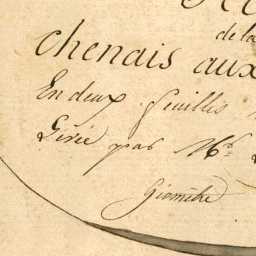 de la
chenais aux
En deux feuilles
Levée par Mr.
Géomètre